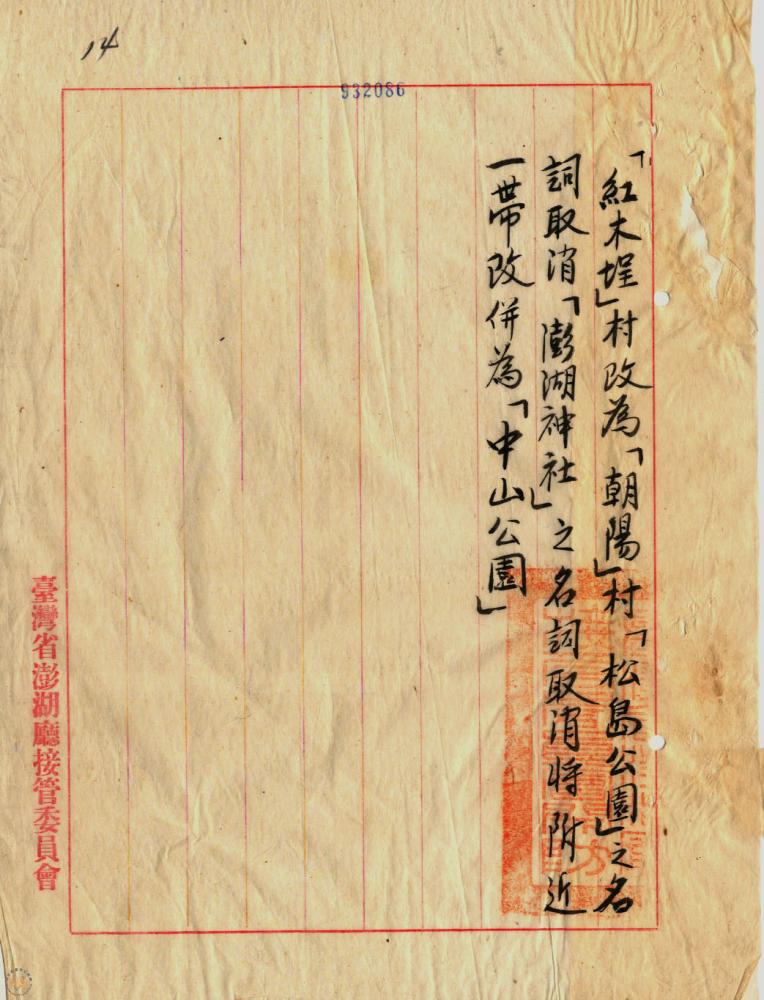 14
932086
「紅木埕」村改為「朝陽」村「松島公園」之名
詞取消「澎湖神社」之名詞取消將附近
一帶改併為「中山公園」
臺灣省澎湖廳接管委員會